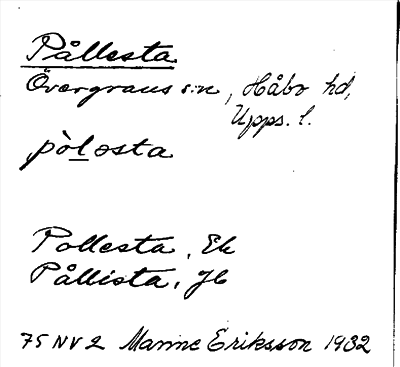 Pållesta
Övergrans s:n, Håbo hd,
Upps. l.
pòlesta
Pollesta, Ek
Pållista, Jb
75 NV 2 Manne Eriksson 1932